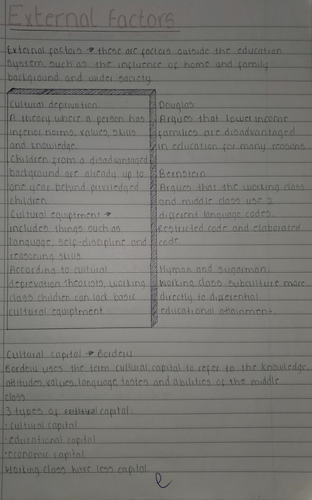 External Factors
External factors → these are factors outside the education
system such as the influence of home and family
background and wider society.
Cultural deprivation.
A theory where a person has
inferior norms, values, skills
and knowledge.
Children from a disadvantaged
background are already up to
one year behind priveledged
children.
Cultural equiptment →
includes things such as
language, self-discipline and
reasoning skills.
According to cultural
deprevation theorists, working
class children can lack basic
cultural equiptment.
Douglas
Argues that lower income
families are disadvantaged
in education for many reasons
Bernstein
Argues that the working class
and middle class use 2
different language codes.
Restricted code and elaborated
code.
Hyman and Sugarman.
Working class subculture more
directly to differential
educational attainment.
Cultural capital → Bordeiu
Bordeiu uses the term cultural capital to refer to the knowledge,
attitudes, values, language tastes and abilities of the middle
class.
3 types of capital:
· cultural capital
· educational capital
· economic capital
Working class have less capital.